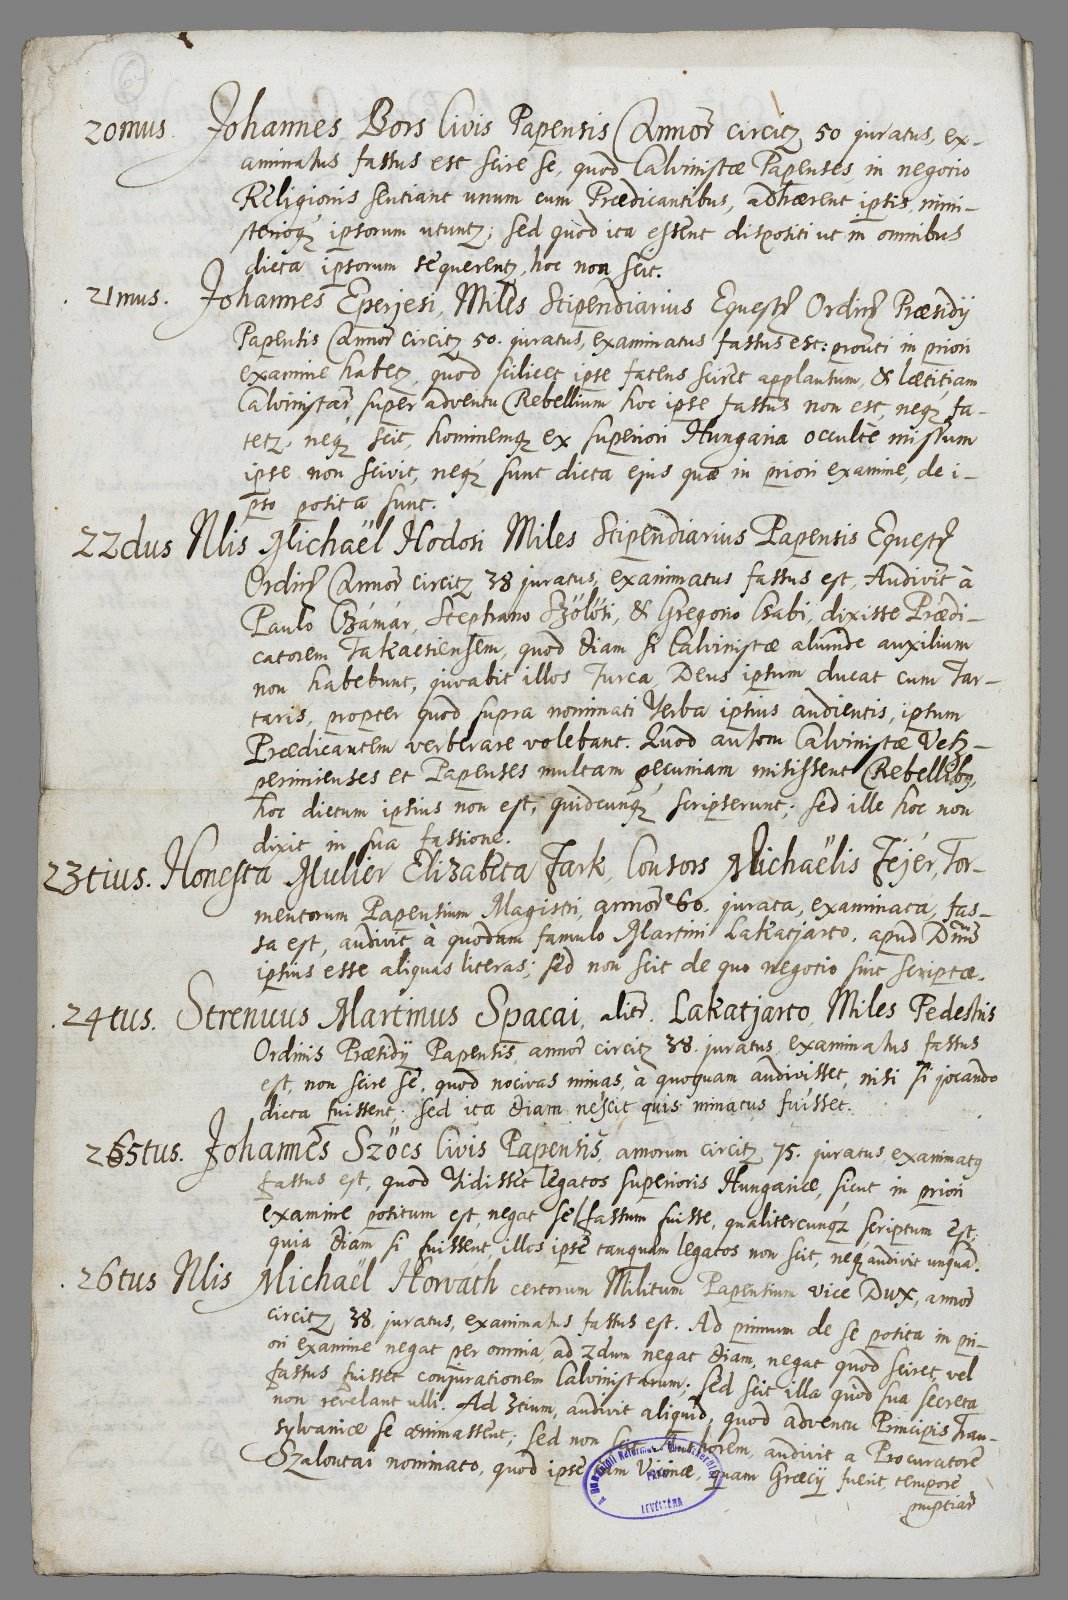 20mus. Johannes Bors Civis Papensis Annor circitz 50 juratus, ex-
aminatus fassus est scire se, quod Calvinistæ Papenses, in negotio
Religionis sentiant unum cum Prædicantibus, adhærent ipsis, mini-
sterioqz ipsorum utuntz; sed quòd ita essent dispositi ut in omnibus
dicta ipsorum sequerentz, hoc non scit.
21mus. Johannes Eperjesi, Miles Stipendiarius Equestr Ordinz Præsidij
Papensis Annor circitz 50. juratus, examinatus fassus est: prouti in priori
examine habetz, quòd scilicet ipse fatens sciret applausum, & lætitiam
Calvinistar, super adventu Rebellium hoc ipse fassus non est, neqz fa-
tetz, neqz scit, hominemqz ex superiori Hungaria occultè missum
ipse non scivit, neqz sunt dicta ejus quæ in priori examine, de i-
pso posita sunt.
22dus Nlis Michaël Hodosi Miles Stipendiarius Papensis Equestr
Ordinz Annor circitz 38 juratus, examinatus fassus est, Audivit à
Paulo Czámár, Stephano Szölösi, & Gregorio Csabi, dixisse Prædi-
catorem Takacsiensem, quod etiam si Calvinistæ aliunde auxilium
non habebunt, juvabit illos Turca, Deus ipsum ducat cum Tar-
taris, propter quod supra nominati Verba ipsius audientis, ipsum
Prædicantem verberare volebant. Quod autem Calvinistæ Vesz-
primienses et Papenses multam pecuniam misissent Rebellibq,
hoc dictum ipsius non est, quidcunqz scripserunt; sed ille hoc non
dixit in sua fassione.
23tius. Honesta Mulier Elizabeta Fark, Consors Michaëlis Fejér, Tor-
mentorum Papensium Magistri, annor 60. jurata, examinata, fas-
sa est, audivit à quodam famulo Martini Lakatjarto, apud Dnum
ipsius esse aliquas literas; sed non scit de quo negotio sint scriptæ.
24tus. Strenuus Martinus Spacai, alitr. Lakatjarto, Miles Pedestris
Ordinis Præsidij Papensis, annor circitz 38. juratus, examinatus fassus
est, non scire se, quod nocivas minas, à quoquam audivisset, nisi si jocando
dicta fuissent: sed ita etiam nescit quis minatus fuisset.
265tus. Johannes Szöcs Civis Papensis, annorum circitz 75. juratus, examinatq
fassus est, quod Vidisset legatos superioris Hungariæ, sicut in priori
examine positum est, negat se fassum fuisse, qualitercunqz scriptum est,
quia etiam si fuissent, illos ipse tanquam legatos non scit, neqz audivit unquã.
26tus Nlis Michaël Horváth certorum Militum Papensium vice Dux, annor
circitz 38, juratus, examinatus fassus est. Ad primum de se posita in pri-
ori examine negat per omnia, ad 2dum negat etiam, negat quod sciret, vel
fassus fuisset conjurationem Calvinistarum; sed scit illa quòd sua secreta
non revelant ulli. Ad 3tium, audivit aliquid, quod adventu Principis Tran-
sylvaniæ se animassent; sed non scit Authorem, audivit a Procuratore
Szalontai nominato, quod ipse tam Viennæ, quam Græcij fuerit, tempore
nuptiar
LEVÉLTÁRA